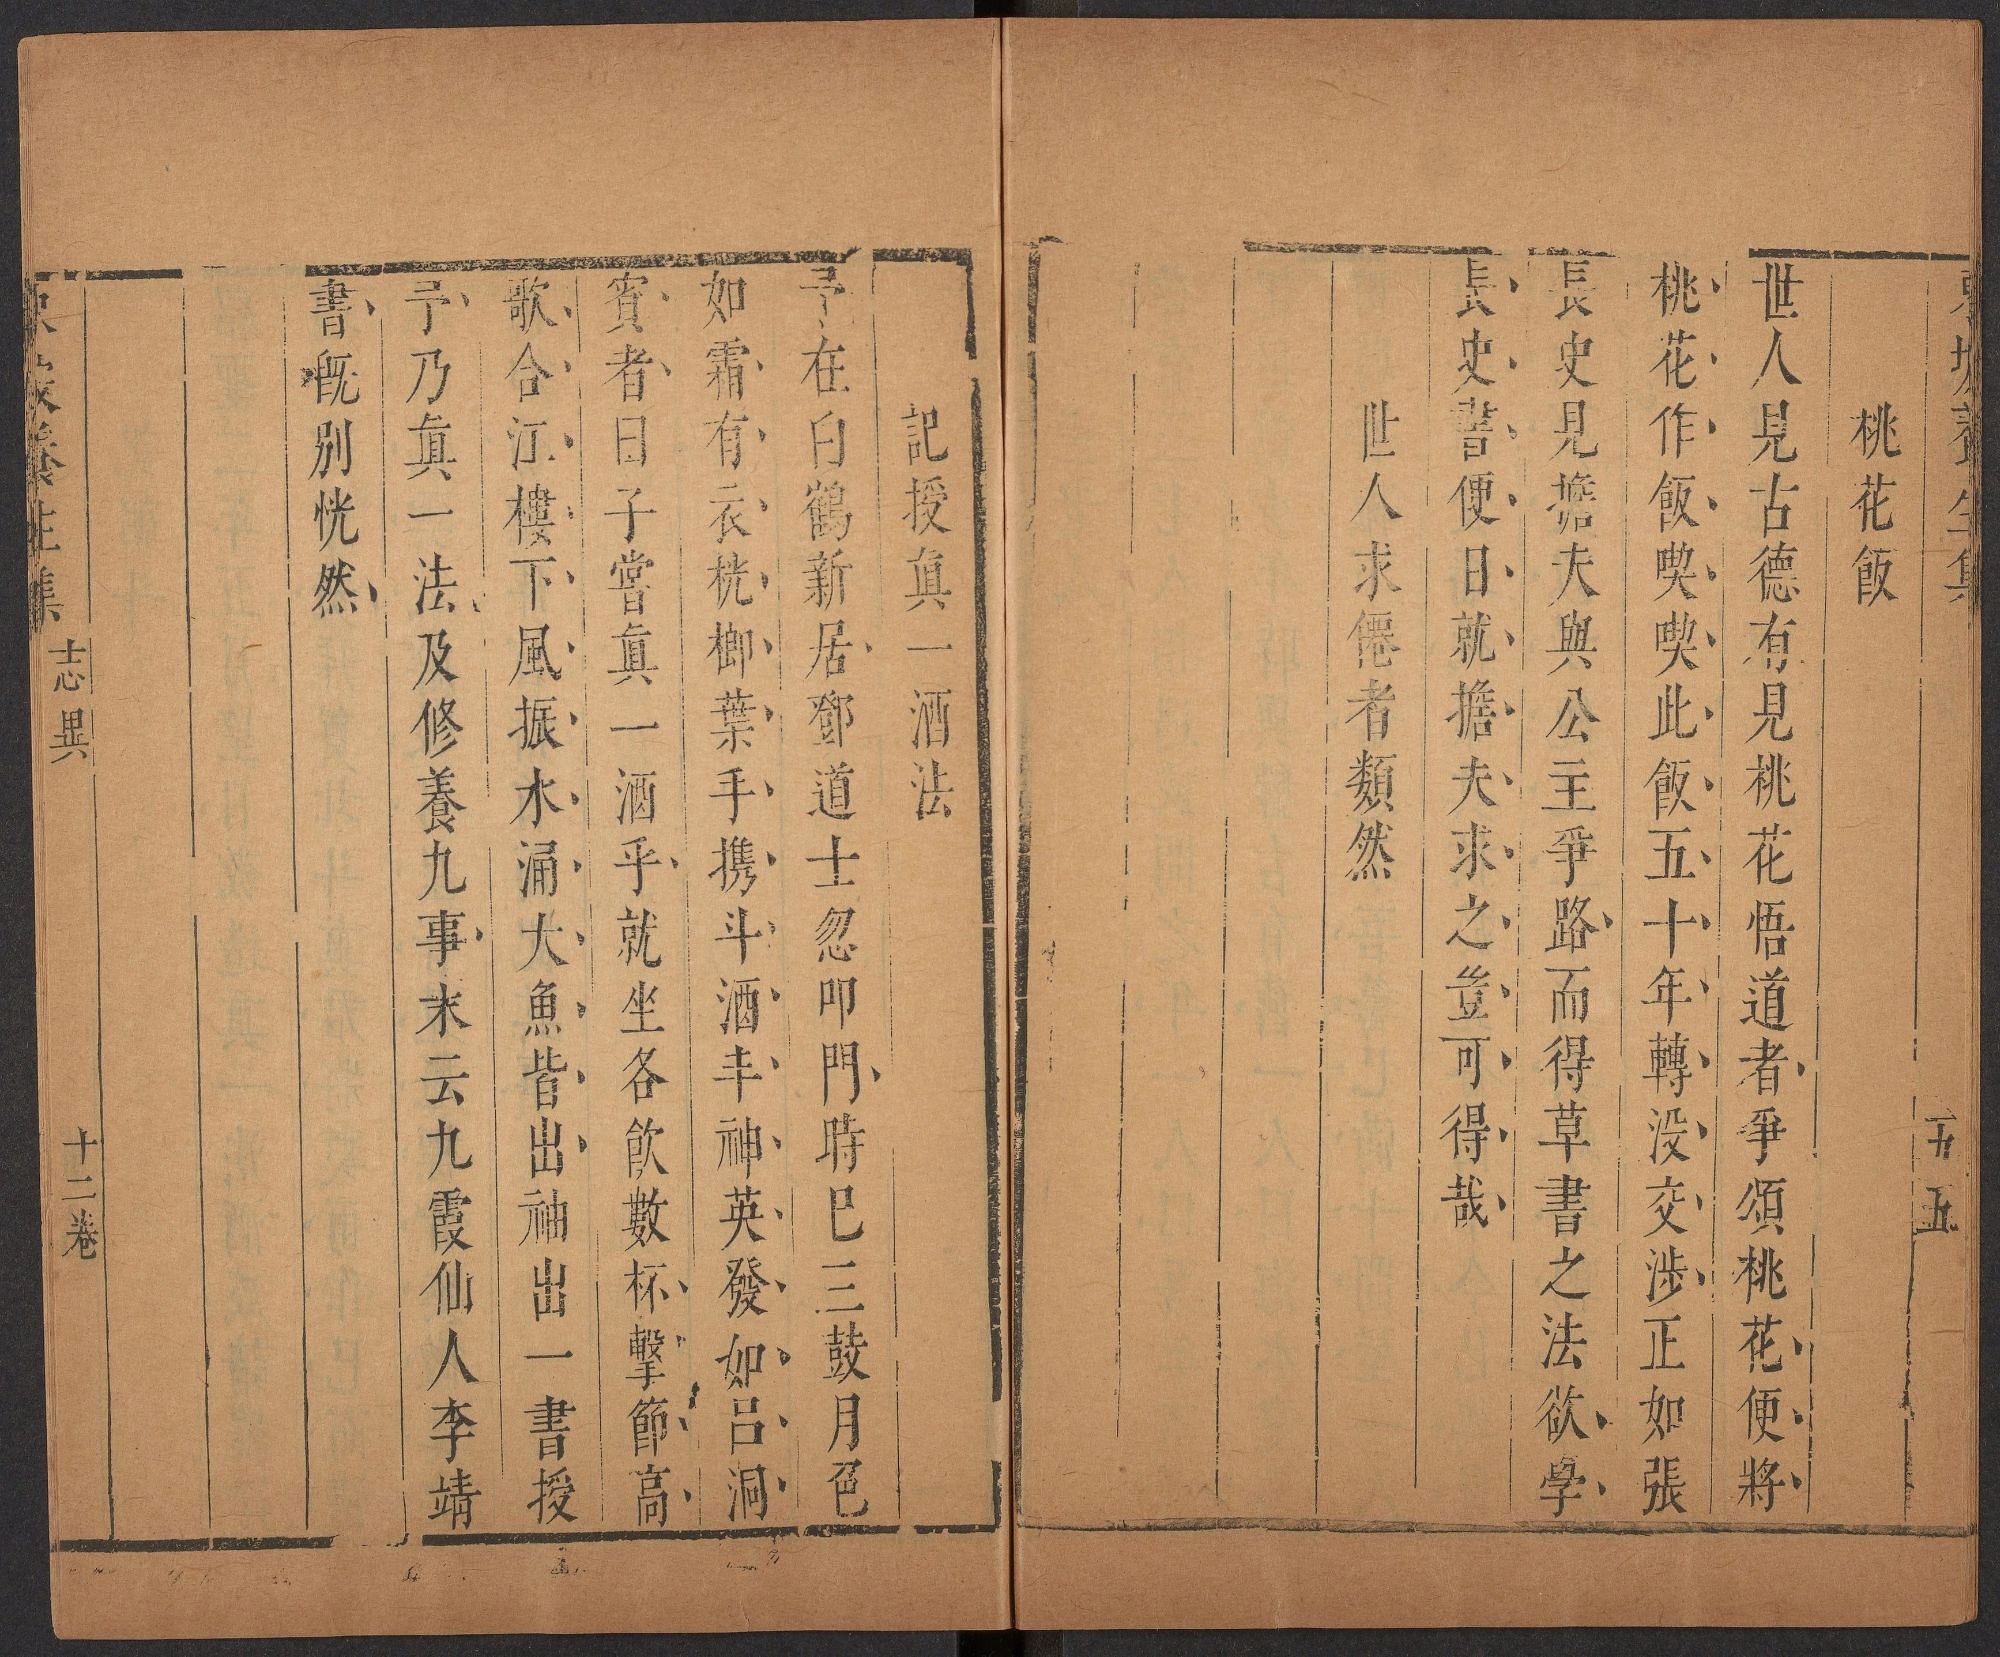 東坡養生集
五
桃花飯
世人見古德有見桃花悟道者爭頌桃花便將
桃花作飯喫喫此飯五十年轉没交涉正如張
長史見擔夫與公主爭路而得草書之法欲學
長史書便日就擔夫求之豈可得哉
世人求僊者類然
記授眞一酒法
予在白鶴新居鄧道士忽叩門時巳三鼓月色
如霜有衣桄榔葉手携斗酒丰神英發如呂洞
賓者曰子嘗眞一酒乎就坐各飮數杯擊節高
歌合江樓下風振水涌大魚皆出袖出一書授
予乃眞一法及修養九事末云九霞仙人李靖
書旣別恍然
東坡養生集 志異 十二卷